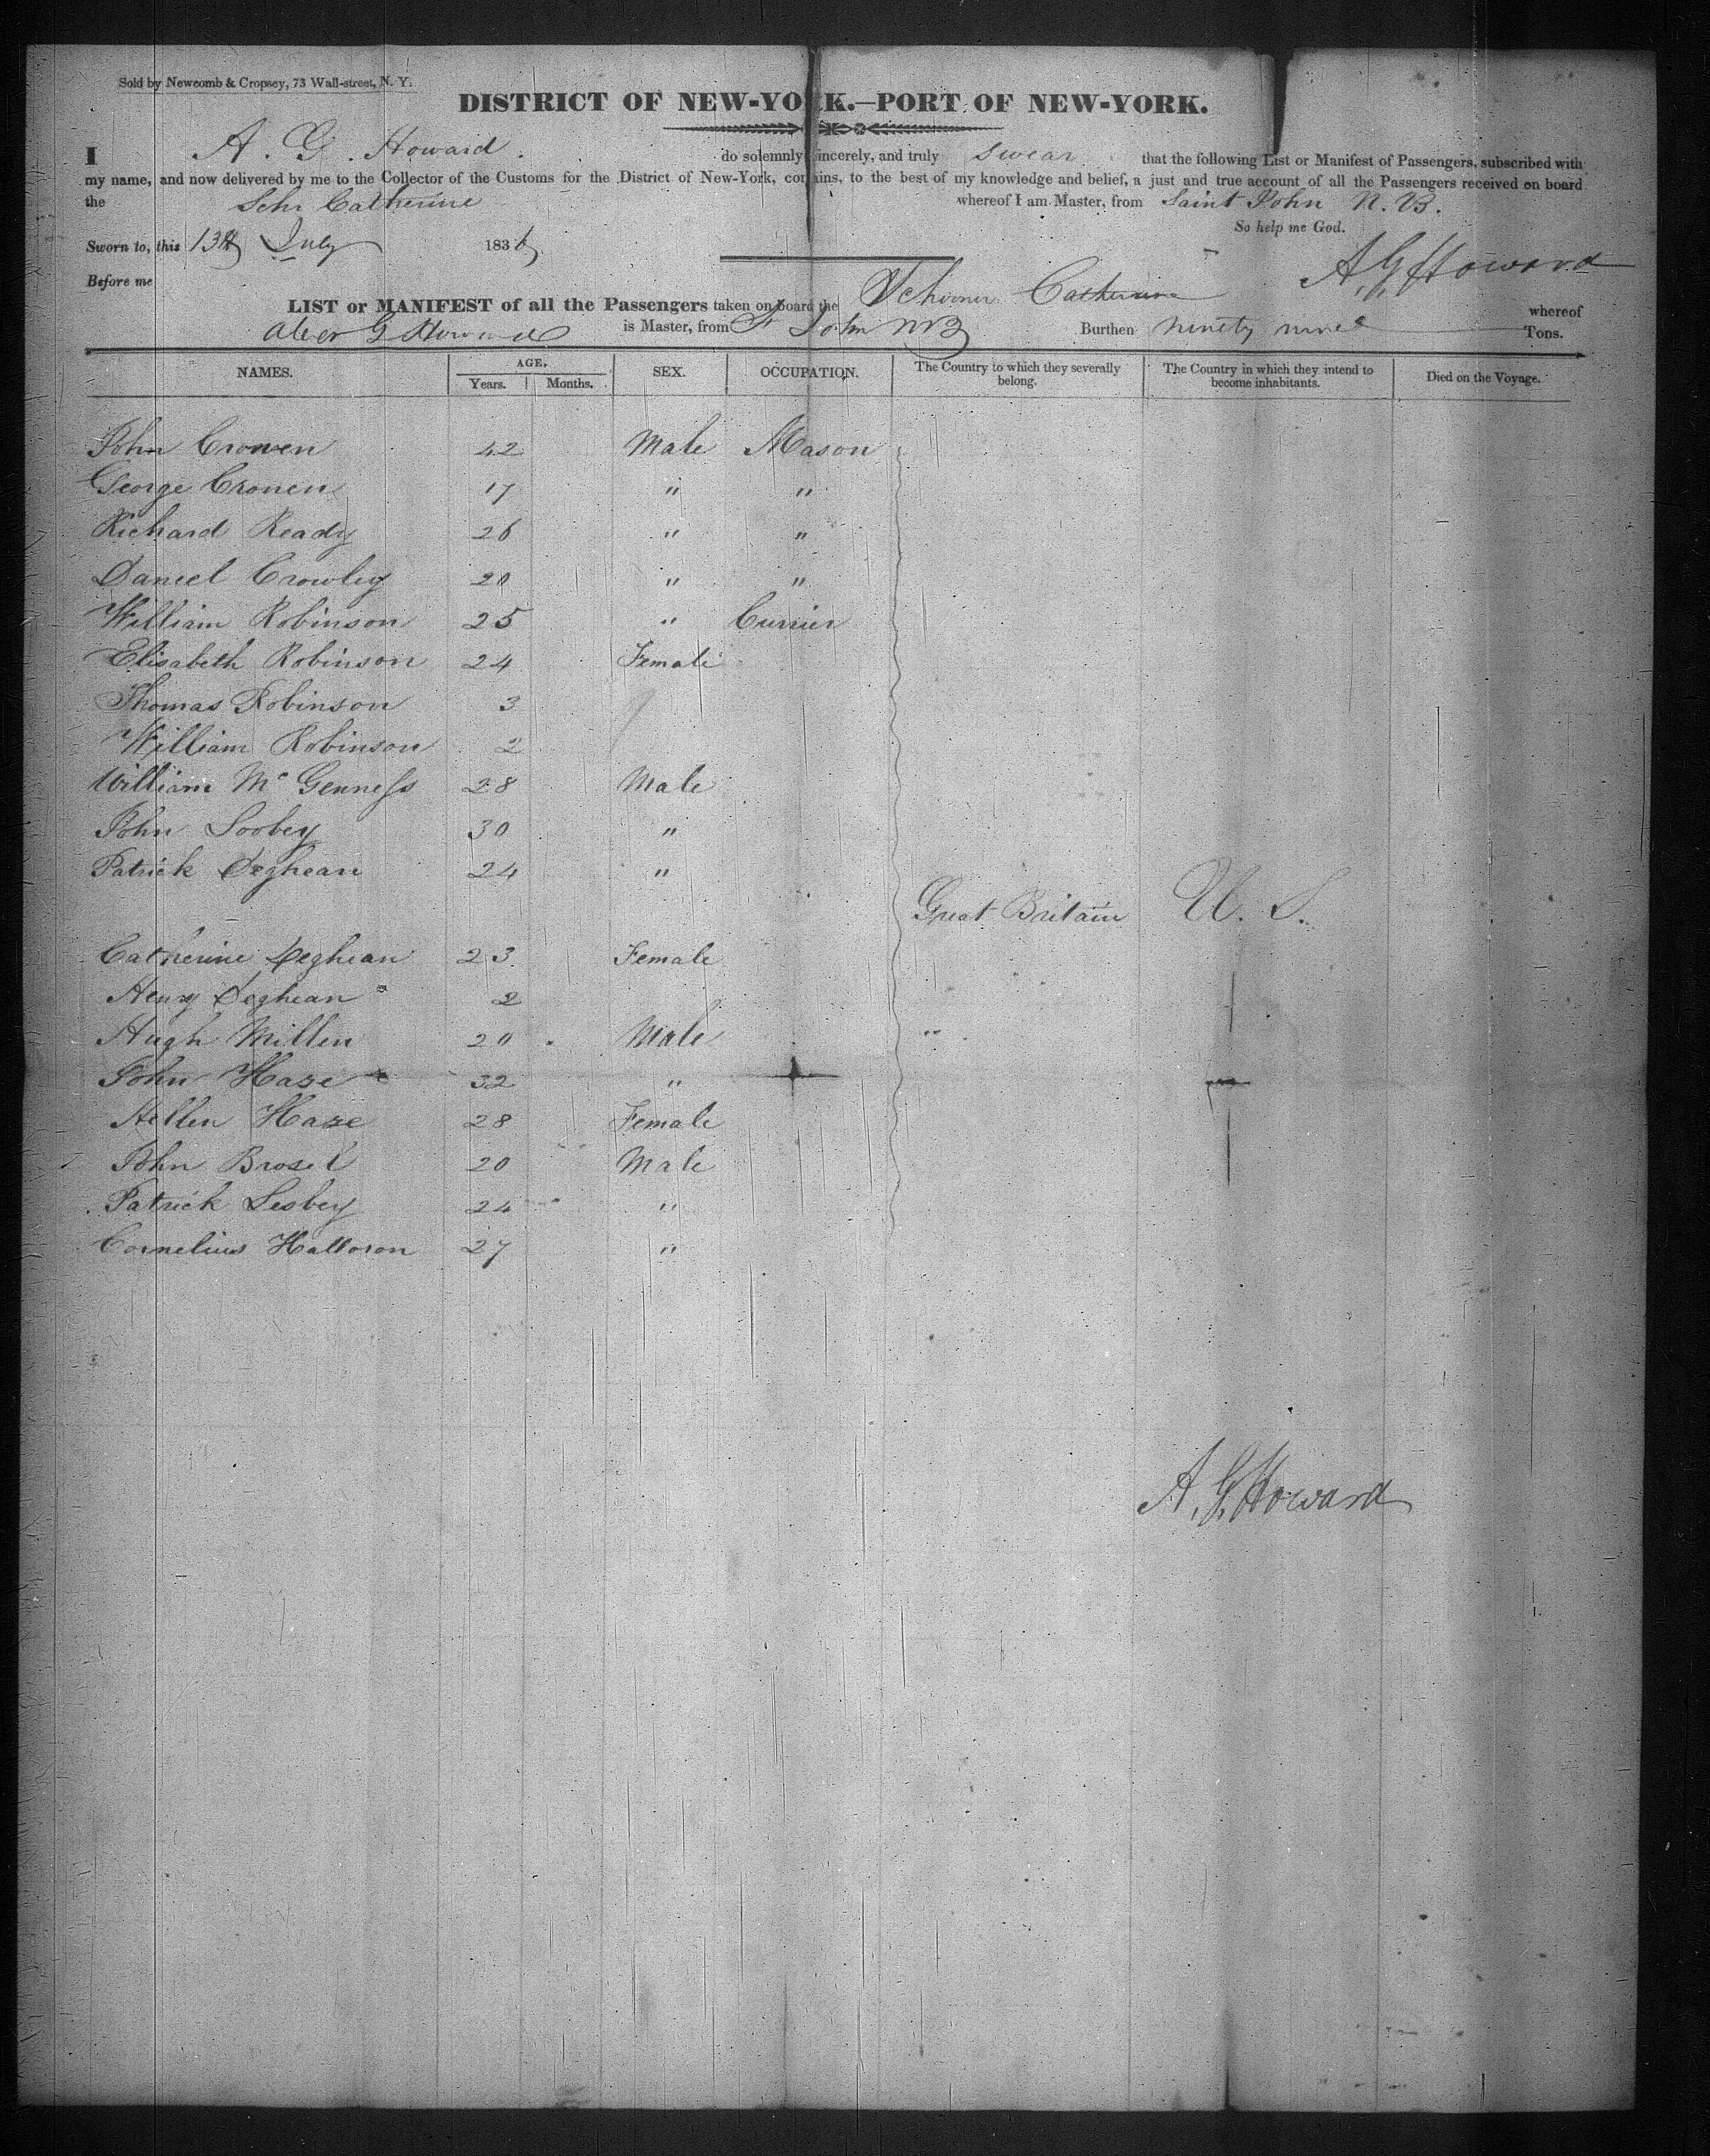 Sold by Newcomb & Cropsey, 73 Wall-street, N. Y.
DISTRICT OF NEW-YORK.—PORT OF NEW-YORK.
I A. G. Howard do solemnly, sincerely, and truly swear that the following List or Manifest of Passengers, subscribed with
my name, and now delivered by me to the Collector of the Customs for the District of New-York, contains, to the best of my knowledge and belief, a just and true account of all the Passengers received on board
the Schr Catherine whereof I am Master, from Saint John N. B.
So help me God.
Sworn to, this 13th July 1836
A G Howard
Before me
LIST or MANIFEST of all the Passengers taken on board the Schooner Catherine whereof
G Howard is Master, from St John NB Burthen ninety nine Tons.
NAMES. AGE. Years. Months. SEX. OCCUPATION. The Country to which they severally belong. The Country in which they intend to become inhabitants. Died on the Voyage.
John Cronen 42 Male Mason
George Cronen 17 " "
Richard Ready 26 " "
Daniel Crowley 20 " "
William Robinson 25 " Currier
Elisabeth Robinson 24 Female
Thomas Robinson 3
William Robinson 2
William Mc Genness 28 Male
John Soobey 30 "
Patrick Deghean 24 "
Great Britain U. S.
Catherine Deghean 23 Female
Henry Deghean 2
Hugh Millen 20 Male "
John Haze 32 "
Hellen Haze 28 Female
John Brosel 20 Male
Patrick Lesbey 24 "
Cornelius Halloron 27 "
A. G. Howard